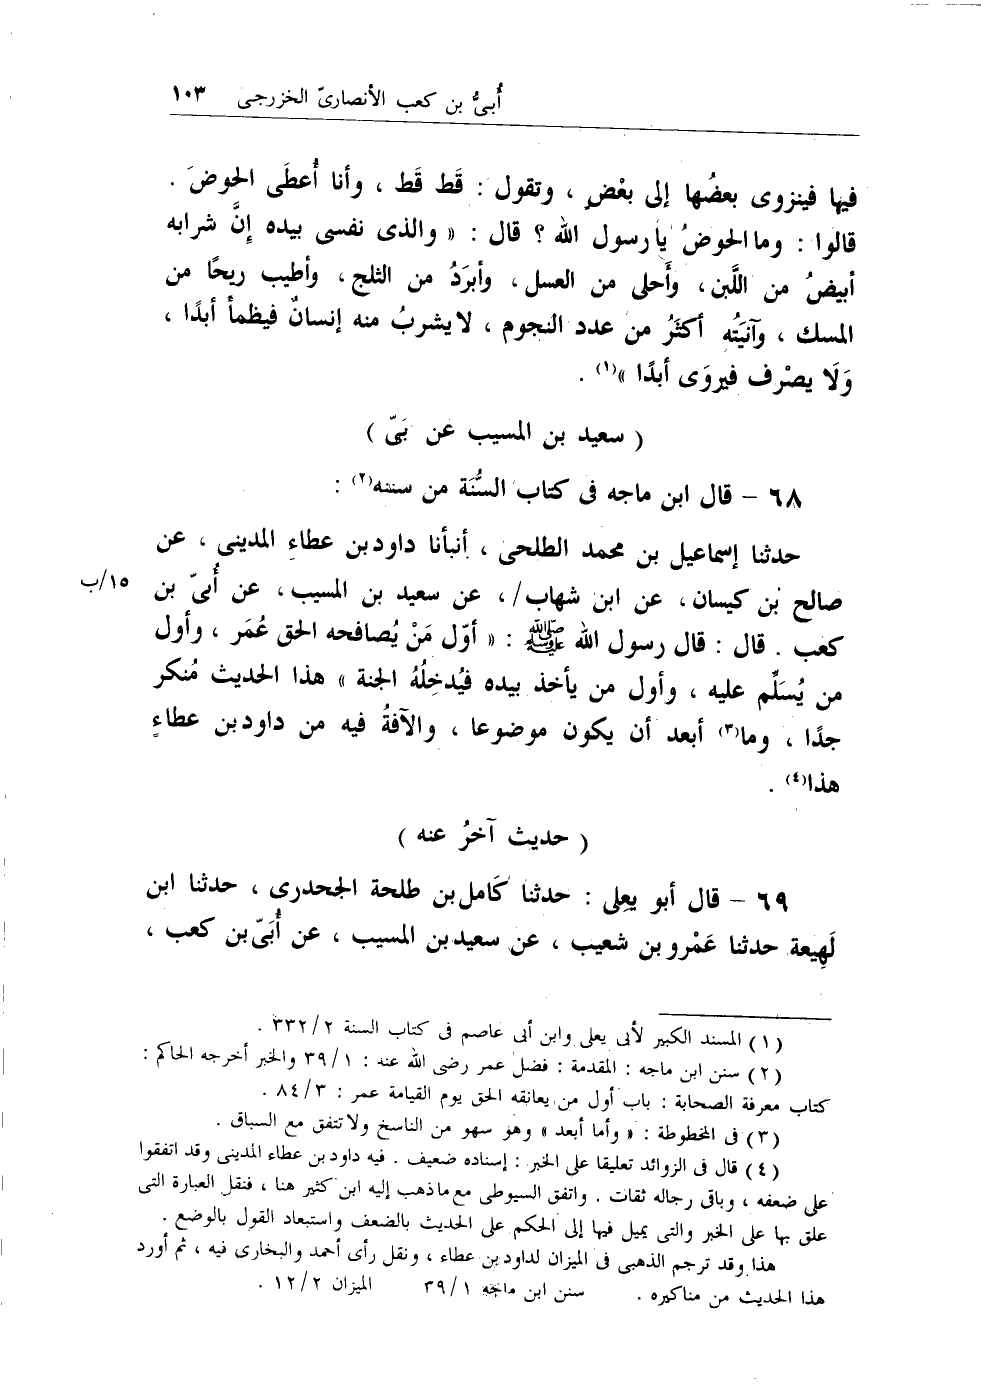 أُبىُّ بن كعب الأنصارىّ الخزرجى ١٠٣
فيها فينزوى بعضُها إلى بعْضٍ ، وتقول : قَط قَط ، وأنا أُعطَى الحوضَ .
قالوا : وما الحوضُ يا رسول الله ؟ قال : « والذى نفسى بيده إنَّ شرابه
أبيضُ من اللَّبن ، وأَحلى من العسل ، وأبرَدُ من الثلج ، وأطيب ريحًا من
المسك ، وآنيَتُه أكثَرُ من عدد النجوم ، لا يشربُ منه إنسانٌ فيظمأ أبدًا ،
وَلَا يصْرف فيروَى أبدًا »(١) .
( سعيد بن المسيب عن بَىّ )
٦٨ – قال ابن ماجه فى كتاب السُّنَة من سننه(٢) :
حدثنا إسماعيل بن محمد الطلحى ، أنبأنا داود بن عطاءِ المدينى ، عن
صالح بن كيسان ، عن ابن شهاب/ ، عن سعيد بن المسيب ، عن أُبىّ بن
١٥/ب
كعب . قال : قال رسول الله ﷺ : « أوّل مَنْ يُصافحه الحق عُمَر ، وأول
من يُسَلِّم عليه ، وأول من يأخذ بيده فيُدخِلُهُ الجنة » هذا الحديث مُنكر
جدًا ، وما(٣) أبعد أن يكون موضوعا ، والآفةُ فيه من داود بن عطاءٍ
هذا(٤) .
( حديث آخرُ عنه )
٦٩ – قال أبو يعلى : حدثنا كَامل بن طلحة الجحدرى ، حدثنا ابن
لَهِيعة حدثنا عَمْرو بن شعيب ، عن سعيد بن المسيب ، عن أُبَىّ بن كعب ،
(١) المسند الكبير لأبى يعلى وابن أبى عاصم فى كتاب السنة ٣٣٢/٢ .
(٢) سنن ابن ماجه : المقدمة : فضل عمر رضى الله عنه : ٣٩/١ والخبر أخرجه الحاكم :
كتاب معرفة الصحابة : باب أول من يعانقه الحق يوم القيامة عمر : ٨٤/٣ .
(٣) فى المخطوطة : « وأما أبعد » وهو سهو من الناسخ ولا تتفق مع السباق .
(٤) قال فى الزوائد تعليقا على الخبر : إسناده ضعيف . فيه داود بن عطاء المدينى وقد اتفقوا
على ضعفه ، وباقى رجاله ثقات . واتفق السيوطى مع ما ذهب إليه ابن كثير هنا ، فنقل العبارة التى
علق بها على الخبر والتى يميل فيها إلى الحكم على الحديث بالضعف واستبعاد القول بالوضع .
هذا وقد ترجم الذهبى فى الميزان لداود بن عطاء ، ونقل رأى أحمد والبخارى فيه ، ثم أورد
هذا الحديث من مناكيره . سنن ابن ماجه ٣٩/١ الميزان ١٢/٢ .